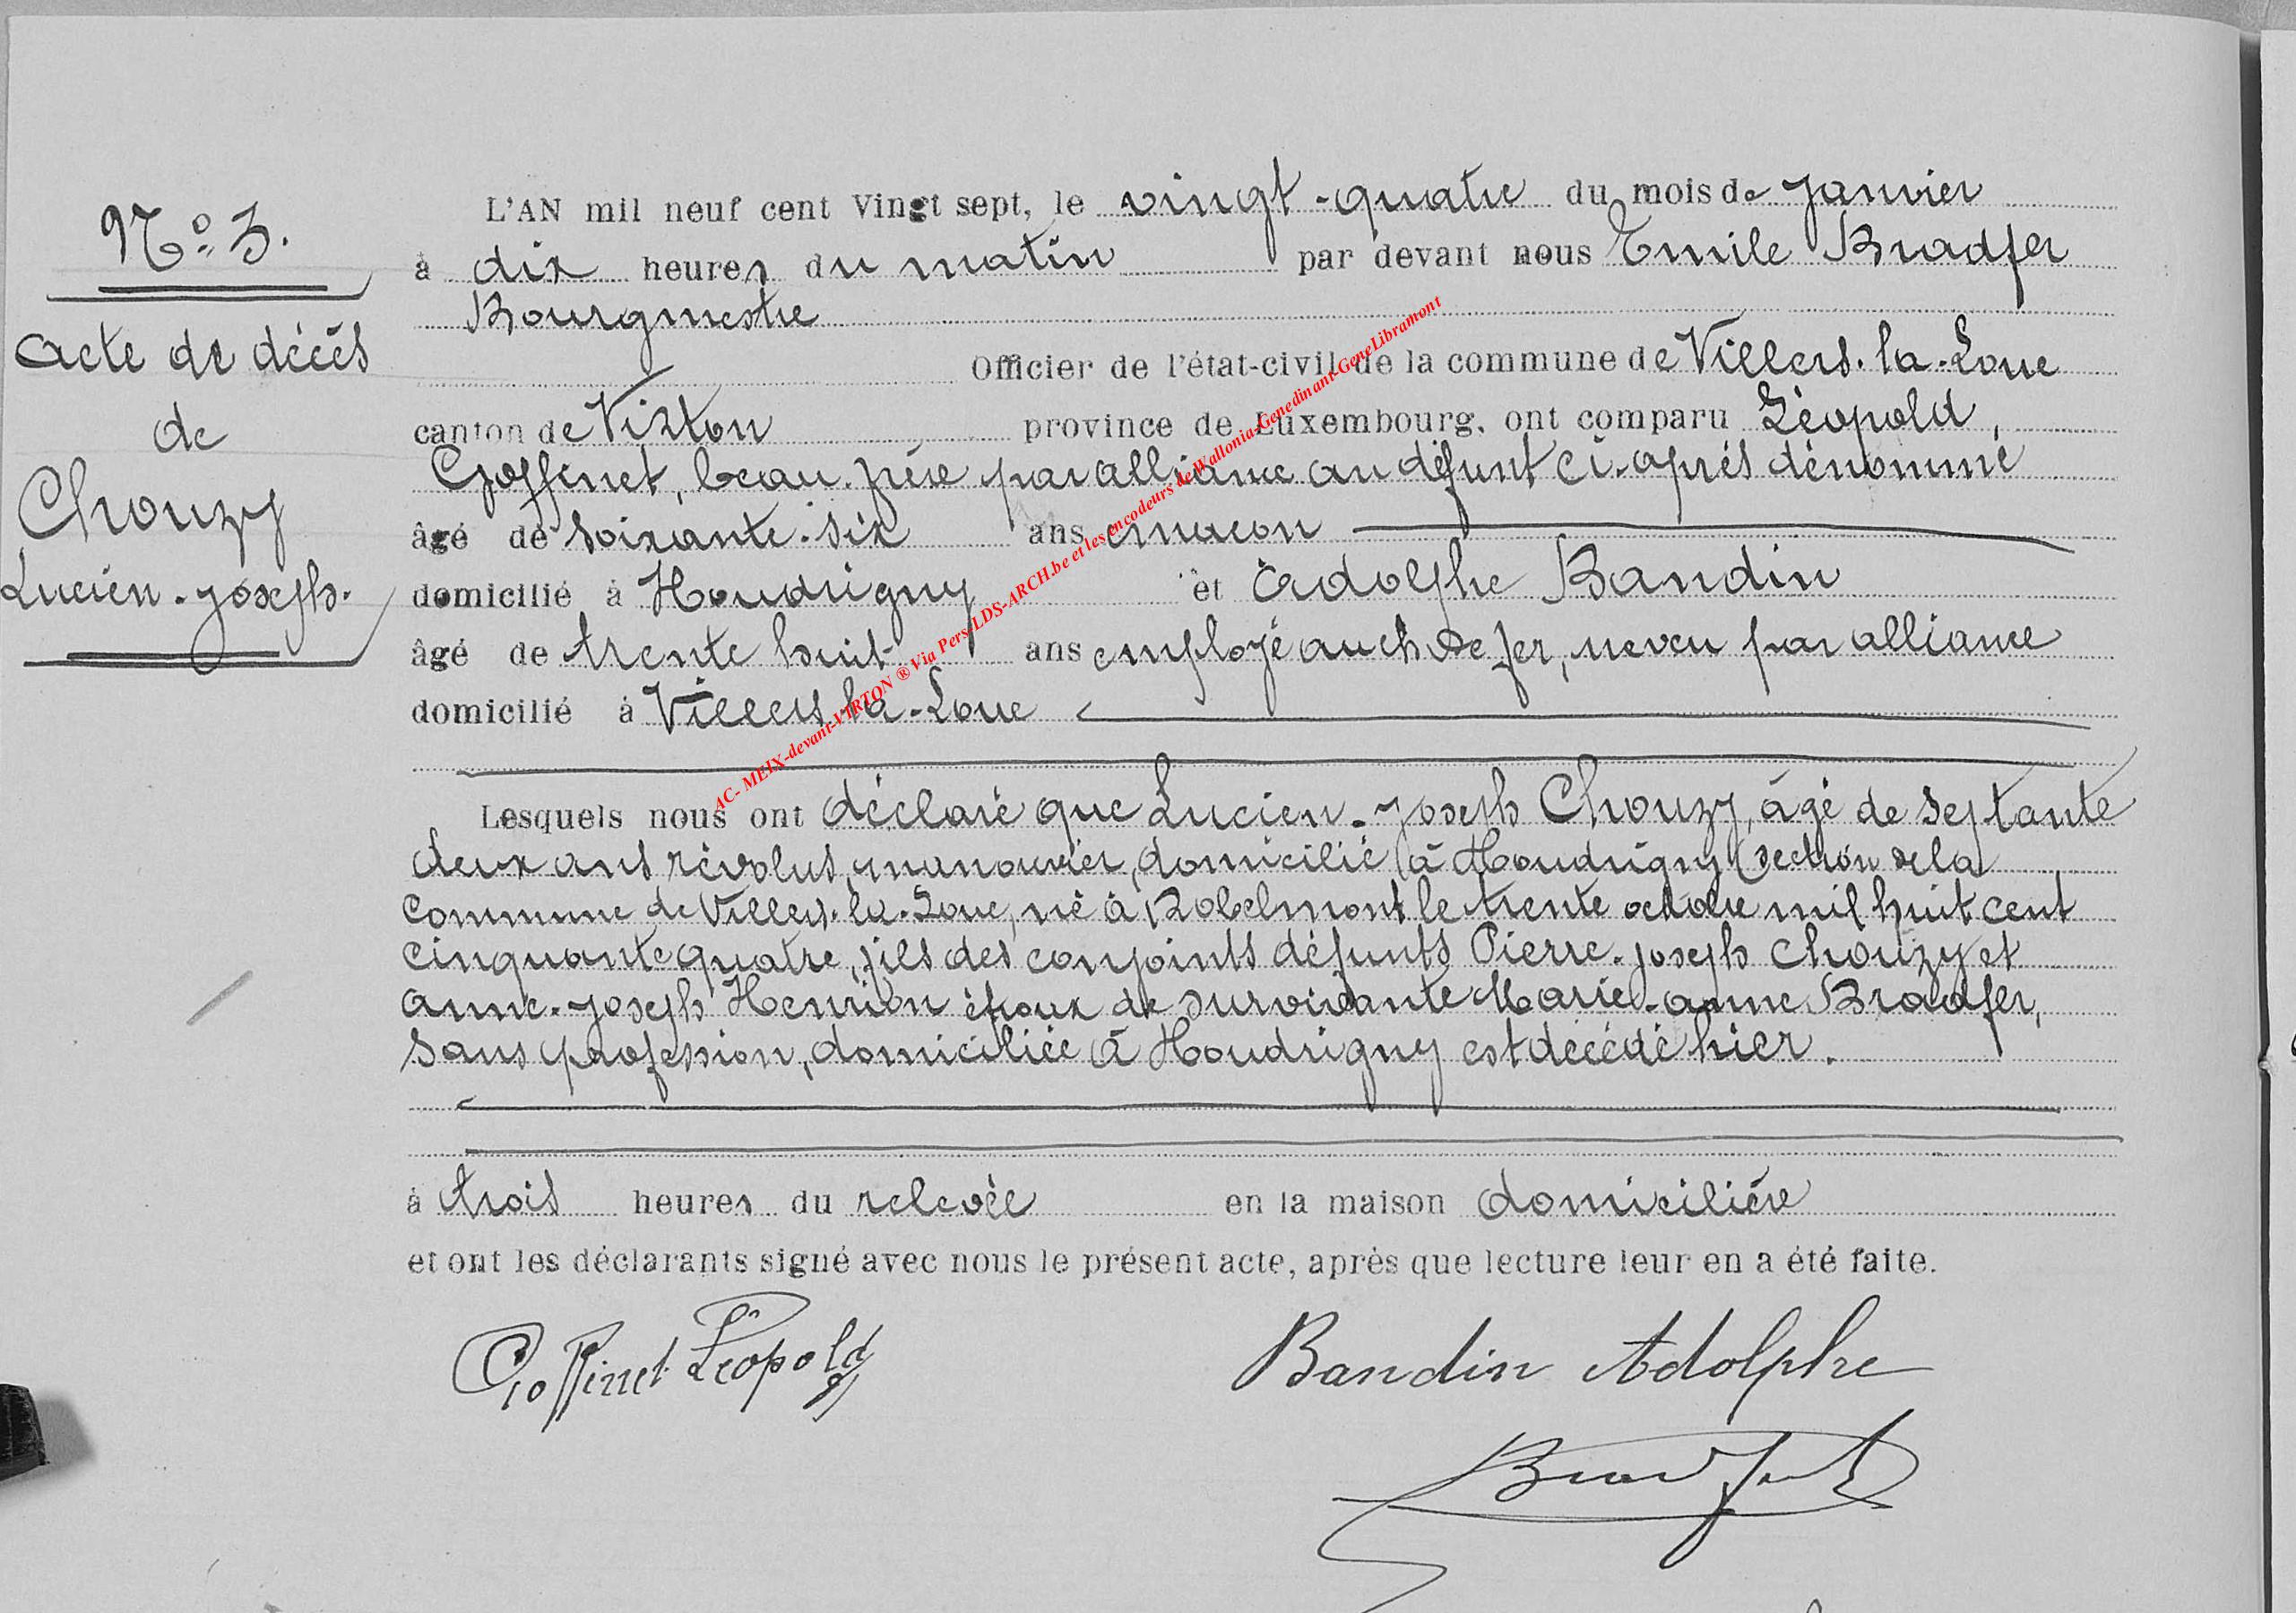 N° 3.
acte de décès
de
Chouzy
Lucien-joseph.
L'AN mil neuf cent Vingt sept, le vingt-quatre du mois de janvier
à dix heures du matin par devant nous Emile Bradfer
Bourgmestre
Officier de l'état-civil de la commune de Villers-la-Loue
canton de Virton province de Luxembourg, ont comparu Léopold,
Goffinet, beau-frère par alliance au défunt ci-après dénommé
âgé de soixante-six ans maçon
domicilié à Houdrigny et Adolphe Bandin
âgé de trente huit ans employé au ch. de fer, neveu par alliance
domicilié à Villers-la-Loue
Lesquels nous ont déclaré que Lucien-joseph Chouzy, âgé de septante
deux ans révolus, manouvrier, domicilié à Houdrigny (section de la
commune de Villers-la-Loue, né à Robelmont le trente octobre mil huit cent
cinquante quatre, fils des conjoints défunts Pierre-joseph Chouzy et
anne-joseph Henrion époux de survivante Marie-anne Bradfer,
sans profession, domiciliée à Houdrigny est décédé hier.
à trois heures du relevée en la maison domiciliére
et ont les déclarants signé avec nous le présent acte, après que lecture leur en a été faite.
Goffinet Léopold Bandin Adolphe
Bradfer
AC- MEIX-devant-VIRTON ® Via Pers-LDS-ARCH.be et les encodeurs de Wallonia-Genedinant-GeneLibramont